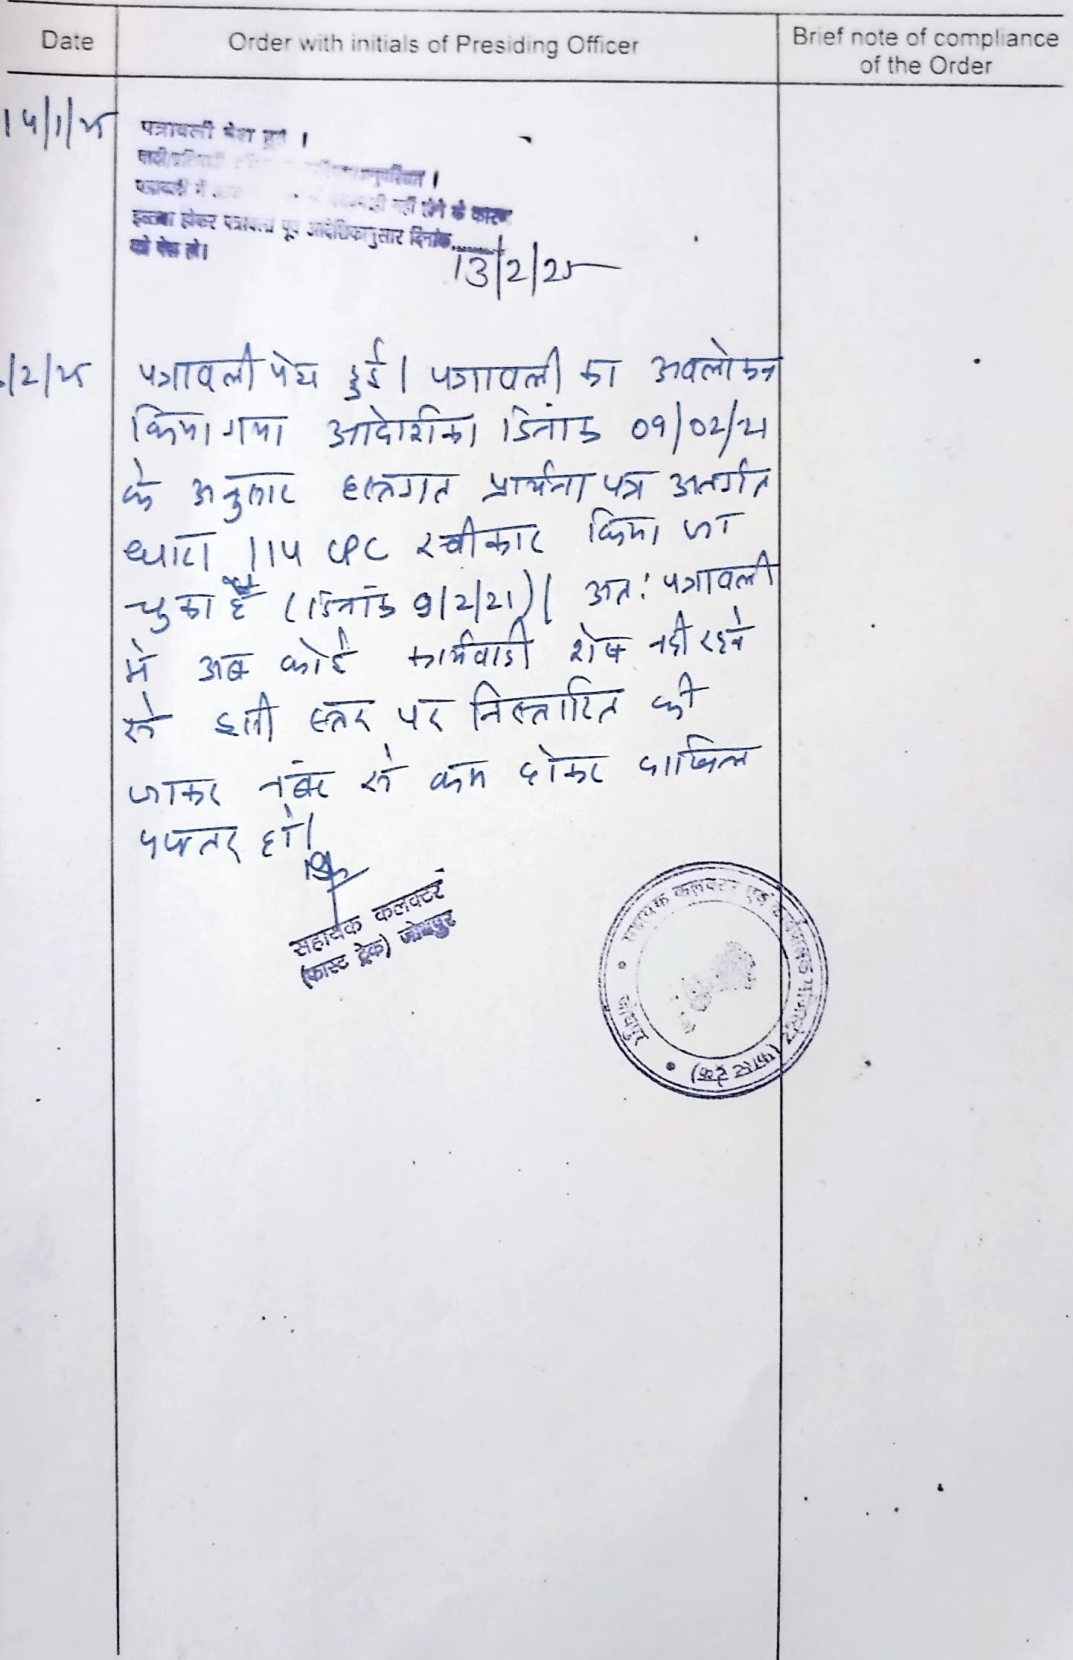 Date
Order with initials of Presiding Officer
Brief note of compliance
of the Order
पत्रावली पेश हुई ।
अनुपस्थित ।
पत्रावली में नहीं होने के कारण
होकर पत्रावली पूर्व आदेशिकानुसार दिनांक........
को पेश हो।
13/2/25
/2/25
पत्रावली पेश हुई । पत्रावली का अवलोकन
किया गया आदेशिका दिनांक 09/02/21
के अनुसार हस्तगत प्रार्थना पत्र अन्तर्गत
धारा 114 CPC स्वीकार किया जा
चुका है (दिनांक 9/2/21) । अतः पत्रावली
में अब कोई कार्यवाही शेष नही रहने
से इसी स्तर पर निस्तारित की
जाकर नंबर से कम होकर दाखिल
दफ्तर हो।
सहायक कलक्टर
(फास्ट ट्रेक) जोधपुर
सहायक कलक्टर एवं कार्यपालक मजिस्ट्रेट (फास्ट ट्रेक) जोधपुर